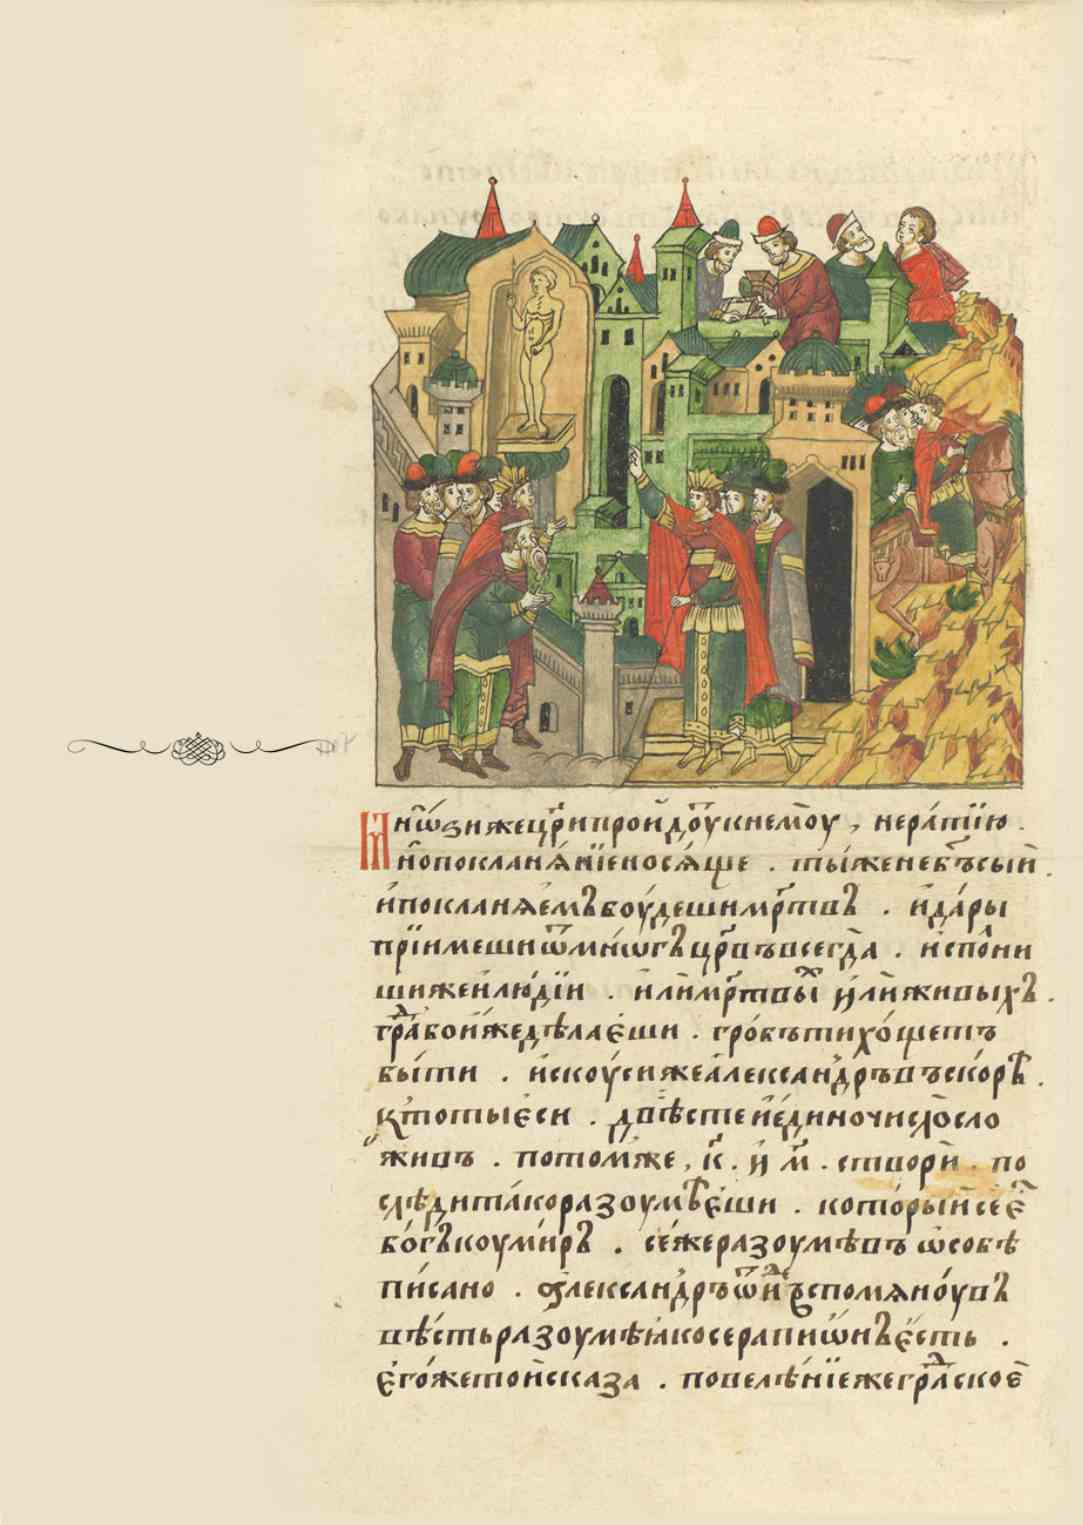 Мнѡзи же цр҃и пройдоу к немоу, не ратїю.
но покланѧнїе носѧще. ты же не бъ҇сый
и покланѧемъ боудеши мр҃твъ. и дары
прїимеши ѿ мнѡгъ цр҃въ всегда. испо́лни
ши же и людїи. и ли мр҃твы́х и ли живыхъ.
гра҇ бо иже дѣлаеши. гробъ ти хощетъ
быти. искоуси же александръ въскорѣ.
кто ты еси. двѣсте и едино число сло
живъ. потом же, к҃. и м҃. створи. по
слѣди тако разоумѣеши. который се е҇
богъ коумиръ. се же разоумѣвъ ѡ собѣ
писано. александръ ѿ нѧдⷤе въспомѧноувъ
вѣсть разоумѣ ꙗко серапиѡнъ есть.
егоже той сказа. повелѣнїе же гра҇ское